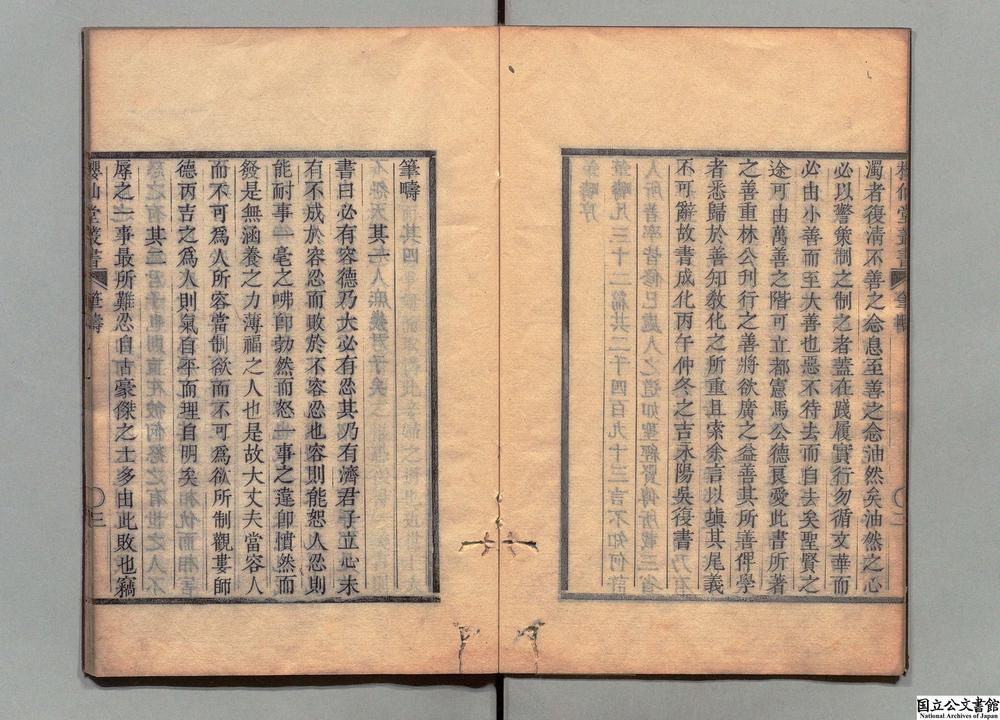 濁者復清不善之念息至善之念油然矣油然之心
必以警策制之制之者蓋在踐履實行勿循文華而
必由小善而至大善也惡不待去而自去矣聖賢之
途可由萬善之階可立都憲馬公德良愛此書所著
之善重林公刊行之善將欲廣之益善其所善俾學
者悉歸於善知教化之所重且索余言以塡其尾義
不可辭故書成化丙午仲冬之吉永陽吳復書
筆疇
其一
書曰必有容德乃大必有忍其乃有濟君子立心未
有不成於容忍而敗於不容忍也容則能恕人忍則
能耐事一毫之咈卽勃然而怒一事之違卽憤然而
發是無涵養之力薄福之人也是故大丈夫當容人
而不可爲人所容當制欲而不可爲欲所制觀婁師
德丙吉之爲人則氣自平而理自明矣
其二
辱之一事最所難忍自古豪傑之士多由此敗也竊
筆疇
三
国立公文書館
National Archives of Japan